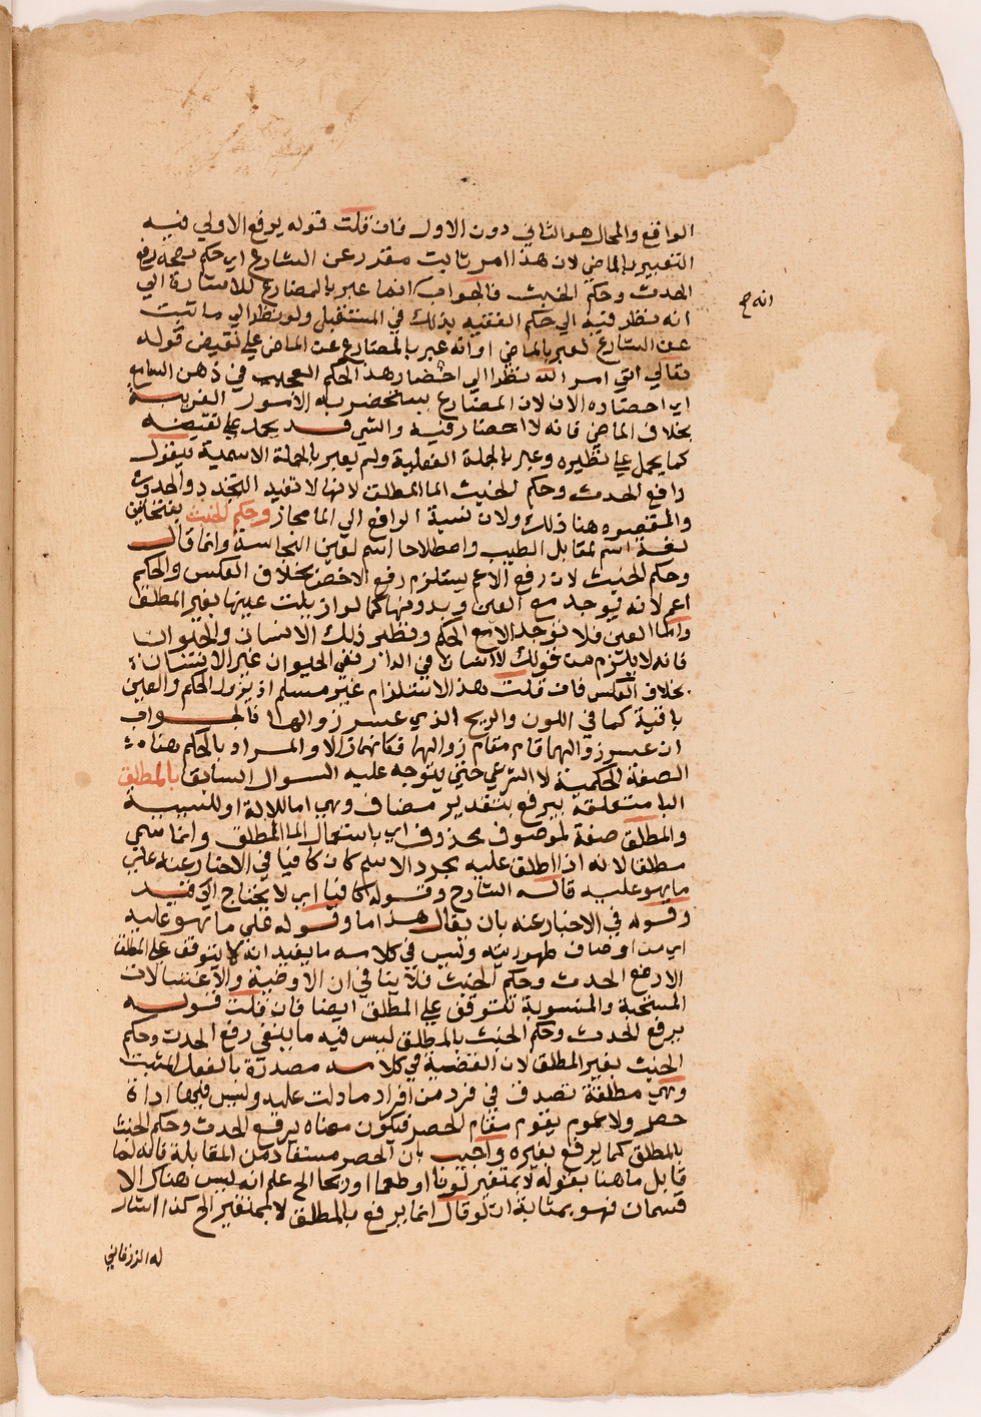 الواقع والمحال هو الثاني دون الاول فان قلت قوله يرفع الاولي فيه
التعبير بالماضي لان هذا امر ثابت مقدر عن الشارع اي حكم بصحة رفع
الحدث وحكم الخبث فالجواب انما عبر بالمضارع للاشارة الي
انه نظر فيه الي حكم الفقيه بذلك في المستقبل ولو نظر الي ما ثبت
انه صح
عن الشارع لعبر بالماضي او انه عبر بالمضارع عن الماضي علي نقيض قوله
تعالي اتي امر الله نظرا الي احضار هذا الحكم العجيب في ذهن السامع
اي احضاره الان لان المضارع يستحضر به الامور الغريبة
بخلاف الماضي فانه لا احضار فيه والشي قد يحمل علي نقيضه
كما يحمل علي نظيره وعبر بالجملة الفعلية ولم يعبر بالجملة الاسمية فيقول
رافع الحدث وحكم الخبث الما المطلق لانها لا تفيد التجدد والحدوث
والمقصود هنا ذلك ولان نسبة الرافع الي الما مجاز وحكم الخبث بفتحتين
لغة اسم لمقابل الطيب واصطلاحا اسم لعين النجاسة وانما قال
وحكم الخبث لان رفع الاعم يستلزم رفع الاخص بخلاف العكس والحكم
اعم لانه يوجد مع العين وبدونها كما لو ازيلت عينها بغير المطلق
واما العين فلا توجد الا مع الحكم ونظير ذلك الانسان والحيوان
فانه لا يلزم من قولك لا انسان في الدار نفي الحيوان غير الانسان
بخلاف العكس فان قلت هذا الاستلزام غير مسلم اذ يزول الحكم والعين
باقية كما في اللون والريح الذي عسر زوالهما فالجواب
ان عسر زوالهما قام مقام زوالهما فكانهما زالا والمراد بالحكم هنا
الصفة الحكمية لا الشرعي حتي يتوجه عليه السوال السابق بالمطلق
البا متعلقة بيرفع بتقدير مضاف وهي اما للالة او للسببية
والمطلق صفة لموصوف محذوف اي باستعمال الما المطلق وانما سمي
مطلقا لانه اذا اطلق عليه مجرد الاسم كان كافيا في الاخبار عنه علي
ما هو عليه قاله الشارح وقوله كافيا اي لا يحتاج الي قيد
وقوله في الاخبار عنه بان يقال هذا ما وقوله علي ما هو عليه
اي من اوصاف طهوريته وليس في كلامه ما يفيد انه لا يتوقف علي المطلق
الا رفع الحدث وحكم الخبث فلا ينافي ان الاوضية والاغتسالات
المستحبة والمسنونة تتوقف علي المطلق ايضا فان قلت قوله
يرفع الحدث وحكم الخبث بالمطلق ليس فيه ما ينفي رفع الحدث وحكم
الخبث بغير المطلق لان القضية في كلامه مصدرة بالفعل المثبت
وهي مطلقة تصدق في فرد من افراد ما دلت عليه وليس فيها اداة
حصر ولا عموم يقوم مقام الحصر فيكون معناه يرفع الحدث وحكم الخبث
بالمطلق كما يرفع بغيره واجيب بان الحصر مستفاد من المقابلة فانه لما
قابل ما هنا بقوله لا بمتغير لونا او طعما او ريحا الخ علم انه ليس هناك الا
قسمان فهو بمثابة ان لو قال انما يرفع بالمطلق لا بالمتغير الخ كذا اشار
له الزرقاني